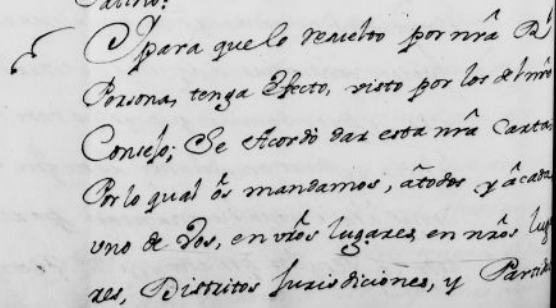 Y para que lo resuelto por nrâ Rl
Persona, tenga Efecto, visto por los del nrô
Consejo; Se Acordò dar esta nrâ Carta,
Por lo qual ôs mandamos, âtodos y âcada
uno de Vos, en vrôs lugares, en nrôs lug
res, Distritos Jurisdiciones, y Partidos